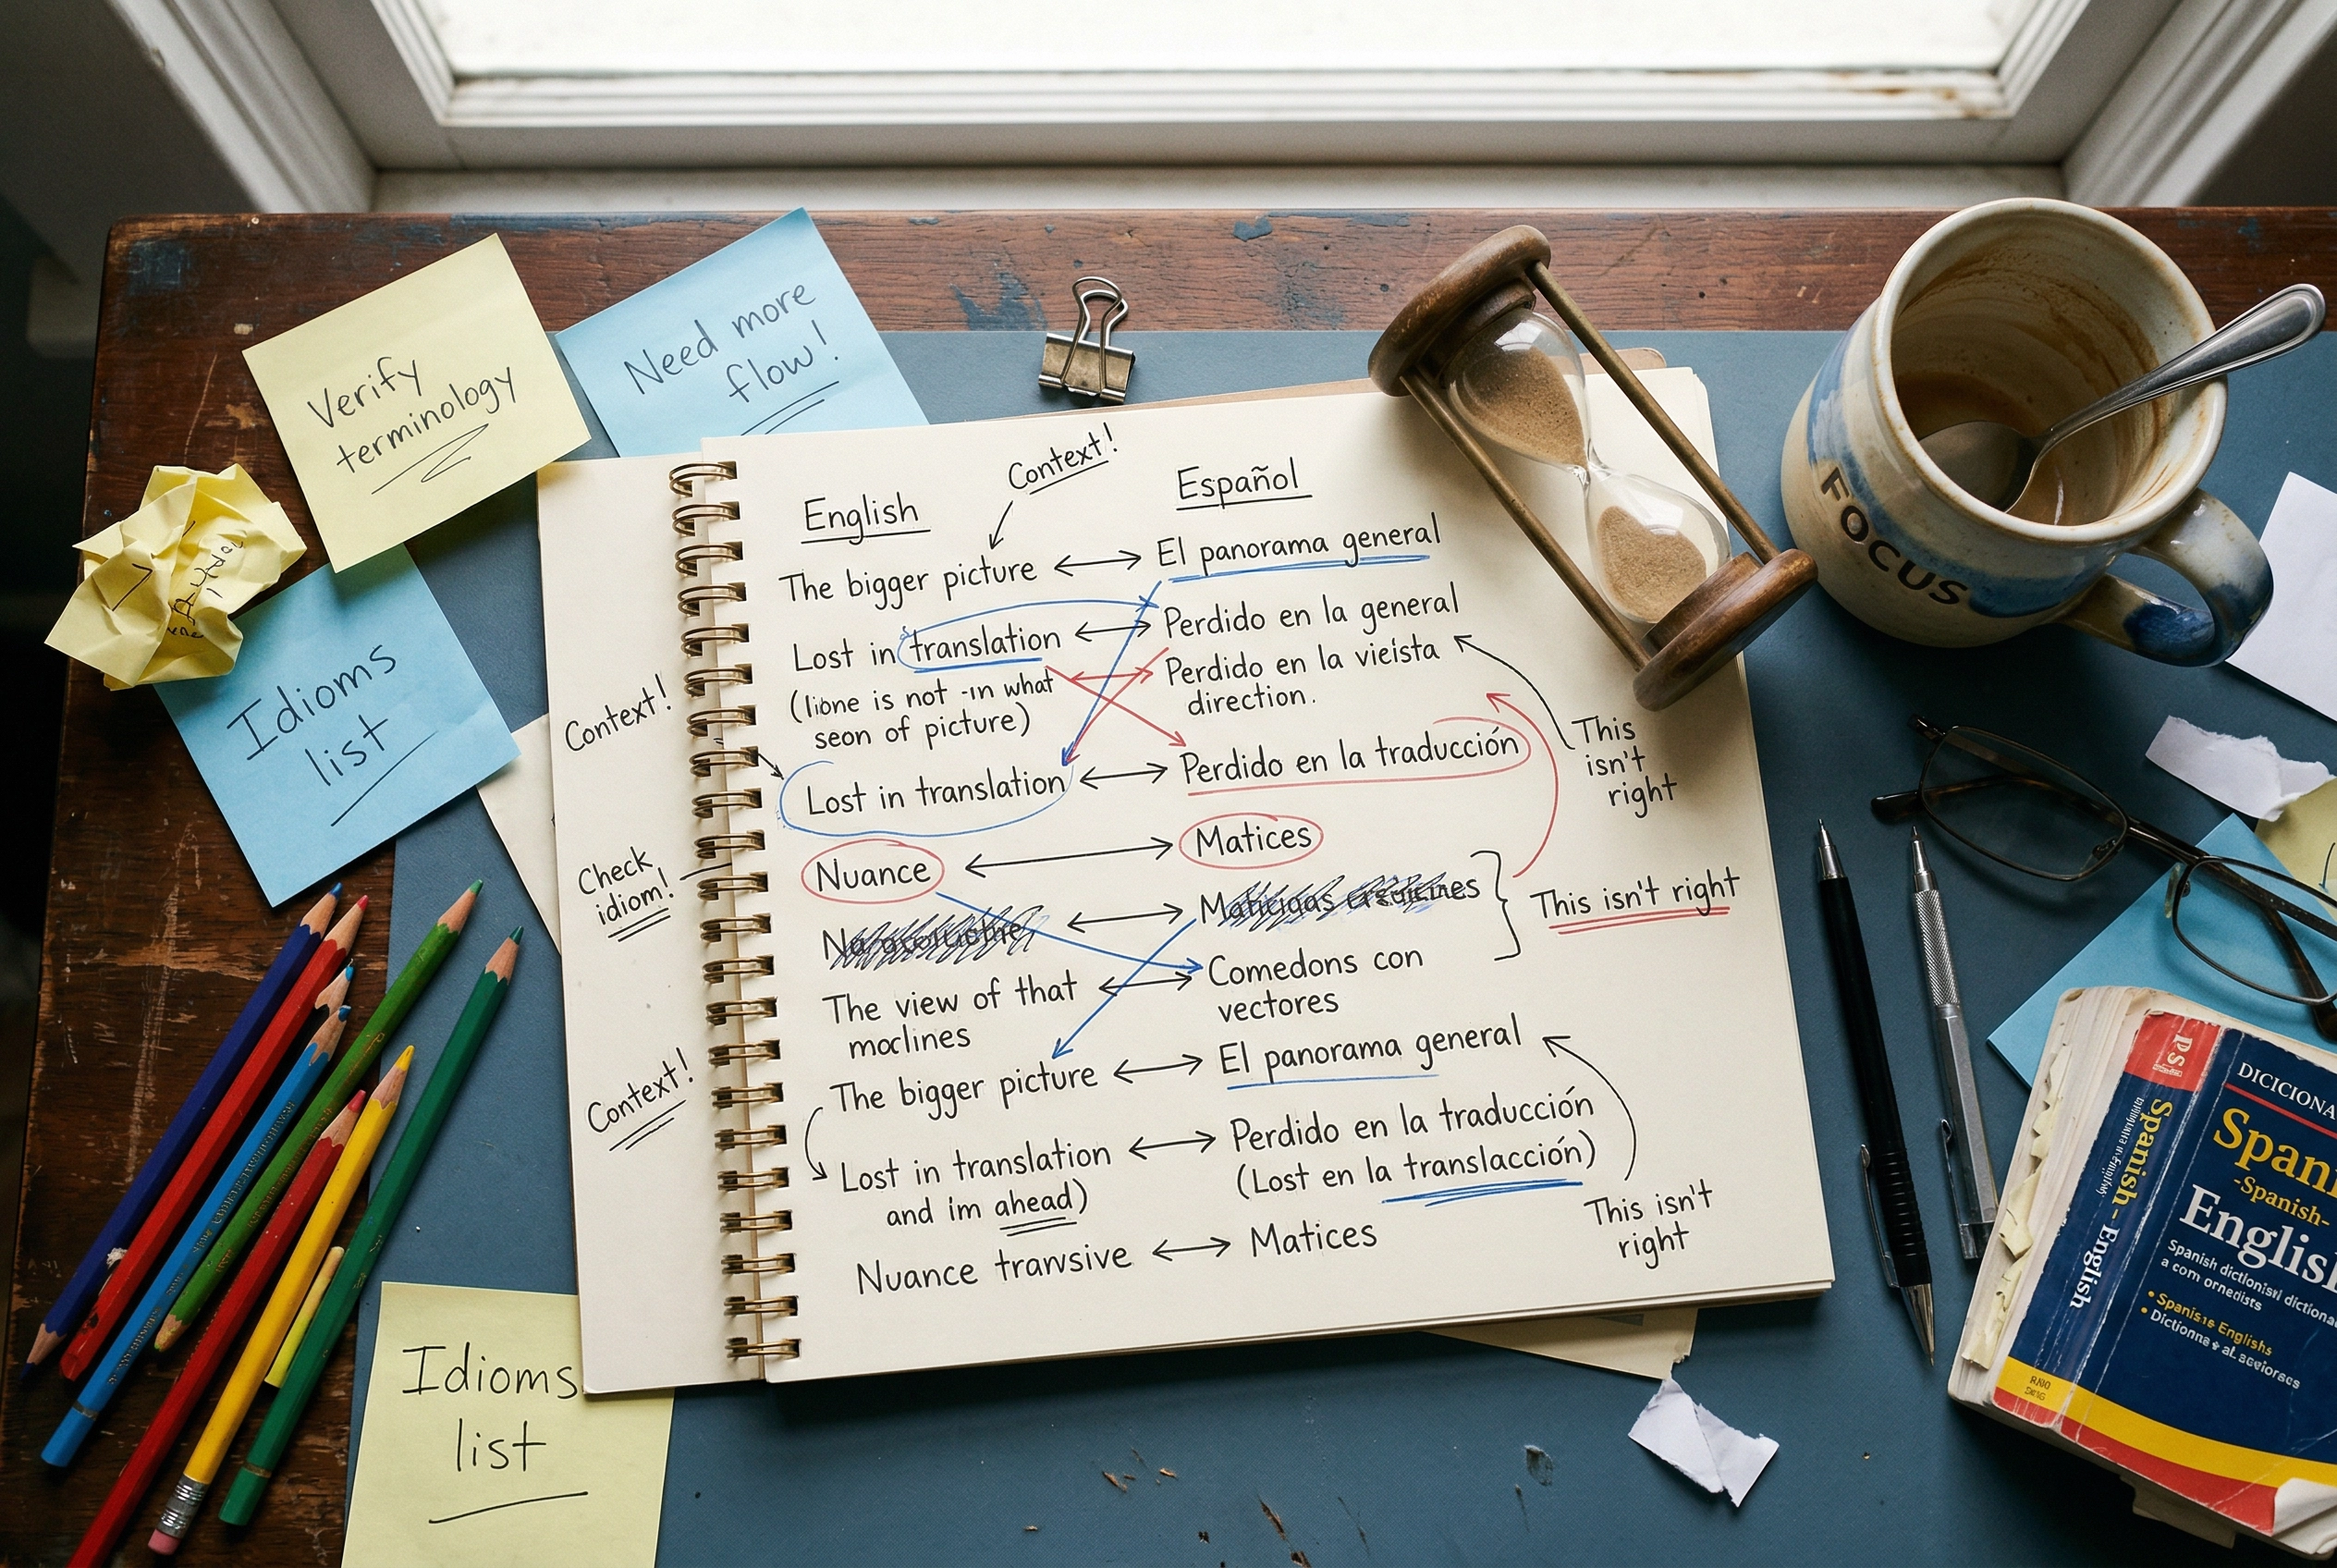 Verify
terminology
Need more
flow!
Idioms
list
Context!
English
Español
The bigger picture ↔ El panorama general
Lost in translation ↔ Perdido en la general
(lione is not -in what
seon of picture)
Perdido en la vieísta
direction.
Context!
Lost in translation ↔ Perdido en la traducción
This
isn't
right
Nuance ↔ Matices
Check
idiom!
This isn't right
The view of that
moclines
Comedons con
vectores
Context!
The bigger picture ↔ El panorama general
Lost in translation
and i'm ahead)
Perdido en la traducción
(Lost en la translacción)
This isn't
right
Nuance tranvsive ↔ Matices
Idioms
list
FOCUS
Spanish - English
DICICIONA
Span
-Spanish-
English
Spanish dictionisivl dictiona
a com ornedists
• Spanis±e Englishs